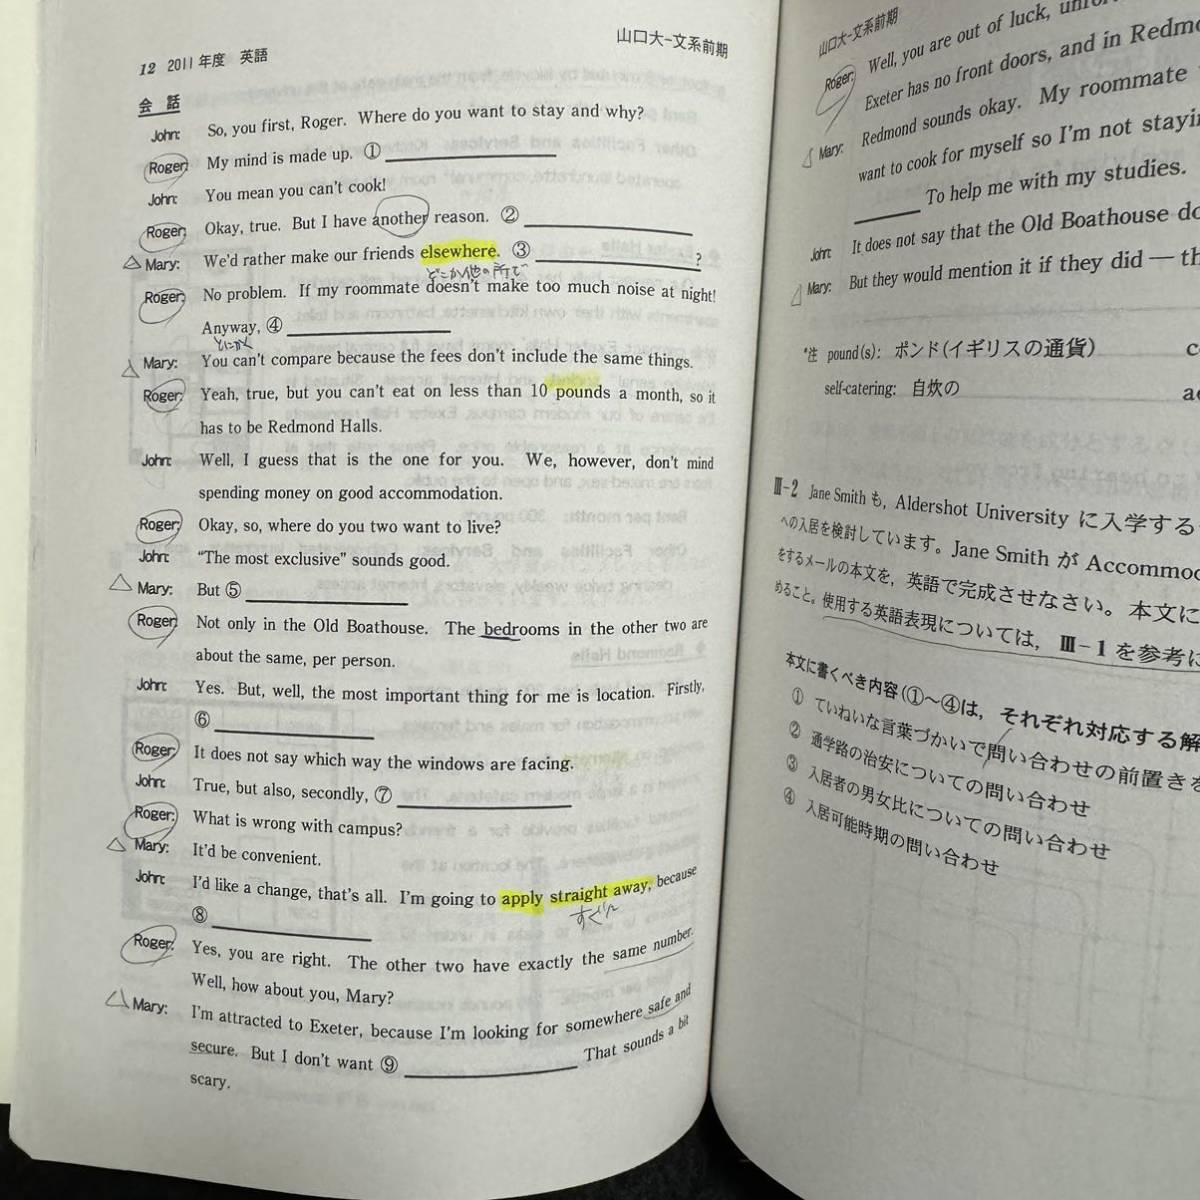 12 2011年度 英語
山口大-文系前期
会話
John: So, you first, Roger. Where do you want to stay and why?
Roger: My mind is made up. ①
John: You mean you can't cook!
Roger: Okay, true. But I have another reason. ②
Mary: We'd rather make our friends elsewhere. ③ ?
どこか他の所で
Roger: No problem. If my roommate doesn't make too much noise at night!
Anyway, ④
とにかく
Mary: You can't compare because the fees don't include the same things.
Roger: Yeah, true, but you can't eat on less than 10 pounds a month, so it
has to be Redmond Halls.
John: Well, I guess that is the one for you. We, however, don't mind
spending money on good accommodation.
Roger: Okay, so, where do you two want to live?
John: “The most exclusive” sounds good.
Mary: But ⑤
Roger: Not only in the Old Boathouse. The bedrooms in the other two are
about the same, per person.
John: Yes. But, well, the most important thing for me is location. Firstly,
⑥
Roger: It does not say which way the windows are facing.
John: True, but also, secondly, ⑦
Roger: What is wrong with campus?
Mary: It'd be convenient.
John: I'd like a change, that's all. I'm going to apply straight away, because
すぐに
⑧
Roger: Yes, you are right. The other two have exactly the same number.
Well, how about you, Mary?
Mary: I'm attracted to Exeter, because I'm looking for somewhere safe and
secure. But I don't want ⑨ That sounds a bit
scary.
山口大-文系前期
Roger: Well, you are out of luck,
Exeter has no front doors, and in
Mary: Redmond sounds okay. My roommate
want to cook for myself so I'm not
To help me with my studies.
John: It does not say that the Old Boathouse
Mary: But they would mention it if they did —
*注 pound(s): ポンド(イギリスの通貨)
self-catering: 自炊の
Ⅲ-2 Jane Smith も, Aldershot University に入学する
への入居を検討しています。Jane Smith が
をするメールの本文を, 英語で完成させなさい。本文に
めること。使用する英語表現については, Ⅲ-1 を参考に
本文に書くべき内容(①〜④は, それぞれ対応する
① ていねいな言葉づかいで問い合わせの前置きを
② 通学路の治安についての問い合わせ
③ 入居者の男女比についての問い合わせ
④ 入居可能時期の問い合わせ